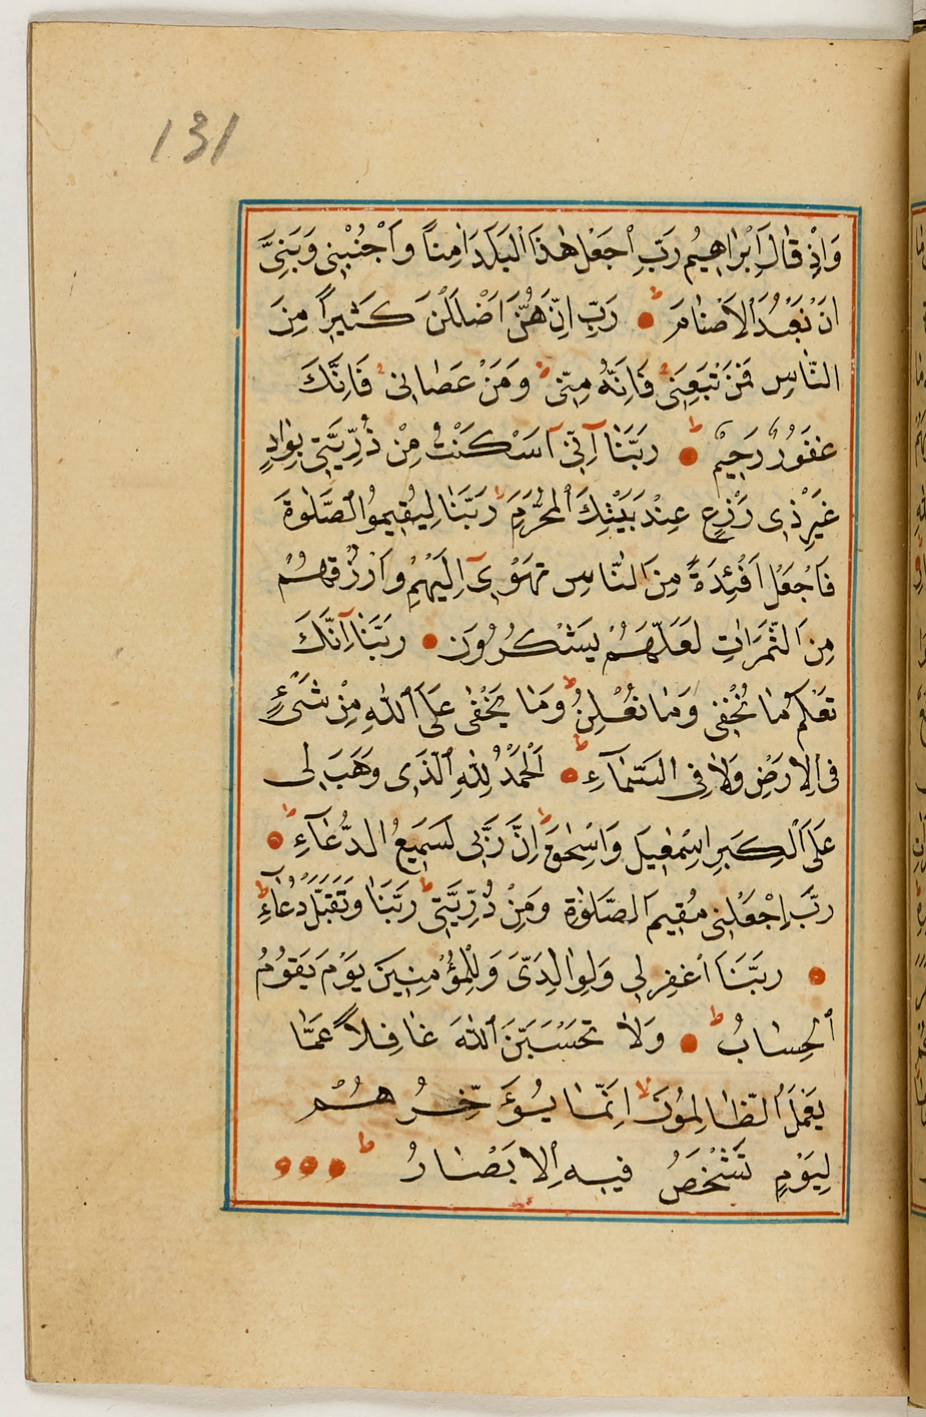 131
وَاِذْ قٰالَ اِبْرٰاهِيمُ رَبِّ اجْعَلْ هٰذَا الْبَلَدَ اٰمِناً وَاجْنُبْنِى وَبَنِىَّ
اَنْ نَعْبُدَ الْاَصْنٰامَ ۝ رَبِّ اِنَّهُنَّ اَضْلَلْنَ كَثِيراً مِنَ
النّٰاسِ فَمَنْ تَبِعَنِى فَاِنَّهُ مِنِّى وَمَنْ عَصٰانِى فَاِنَّكَ
غَفُورٌ رَحِيمٌ ۝ رَبَّنٰا اِنِّى اَسْكَنْتُ مِنْ ذُرِّيَّتِى بِوٰادٍ
غَيْرِ ذِى زَرْعٍ عِنْدَ بَيْتِكَ الْمُحَرَّمِ رَبَّنٰا لِيُقِيمُوا الصَّلٰوةَ
فَاجْعَلْ اَفْئِدَةً مِنَ النّٰاسِ تَهْوِى اِلَيْهِمْ وَارْزُقْهُمْ
مِنَ الثَّمَرٰاتِ لَعَلَّهُمْ يَشْكُرُونَ ۝ رَبَّنٰا اِنَّكَ
تَعْلَمُ مٰا نُخْفِى وَمٰا نُعْلِنُ ط وَمٰا يَخْفٰى عَلَى اللّٰهِ مِنْ شَىْءٍ
فِى الْاَرْضِ وَلاٰ فِى السَّمٰآءِ ۝ اَلْحَمْدُ لِلّٰهِ الَّذِى وَهَبَ لِى
عَلَى الْكِبَرِ اِسْمٰعِيلَ وَاِسْحٰقَ ط اِنَّ رَبِّى لَسَمِيعُ الدُّعٰآءِ ۝
رَبِّ اجْعَلْنِى مُقِيمَ الصَّلٰوةِ وَمِنْ ذُرِّيَّتِى ط رَبَّنٰا وَتَقَبَّلْ دُعٰآءِ ط
۝ رَبَّنَا اغْفِرْ لِى وَلِوٰالِدَىَّ وَلِلْمُؤْمِنِينَ يَوْمَ يَقُومُ
الْحِسٰابُ ط ۝ وَلاٰ تَحْسَبَنَّ اللّٰهَ غٰافِلاً عَمّٰا
يَعْمَلُ الظّٰالِمُونَ لا اِنَّمٰا يُؤَخِّرُهُمْ
لِيَوْمٍ تَشْخَصُ فِيهِ الْاَبْصٰارُ ط ۝